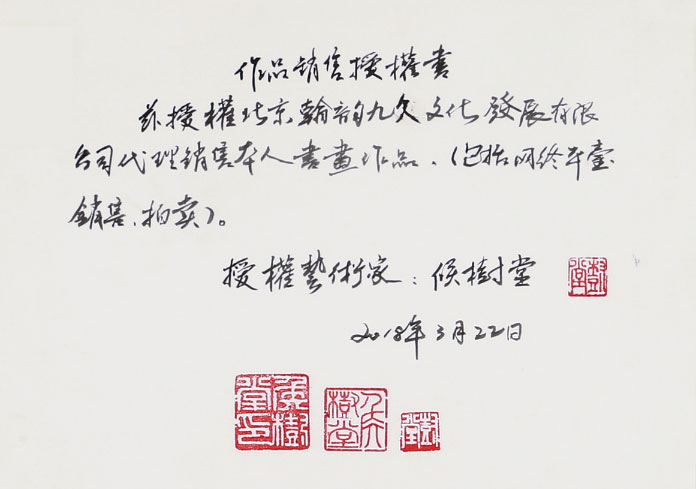 作品销售授權書
兹授權北京翰韵九久文化發展有限
公司代理销售本人書畫作品、(包括网络平臺
銷售、拍卖)。
授權藝術家：侯樹堂
樹堂
2018年3月22日
侯樹堂印
侯樹堂
樹堂